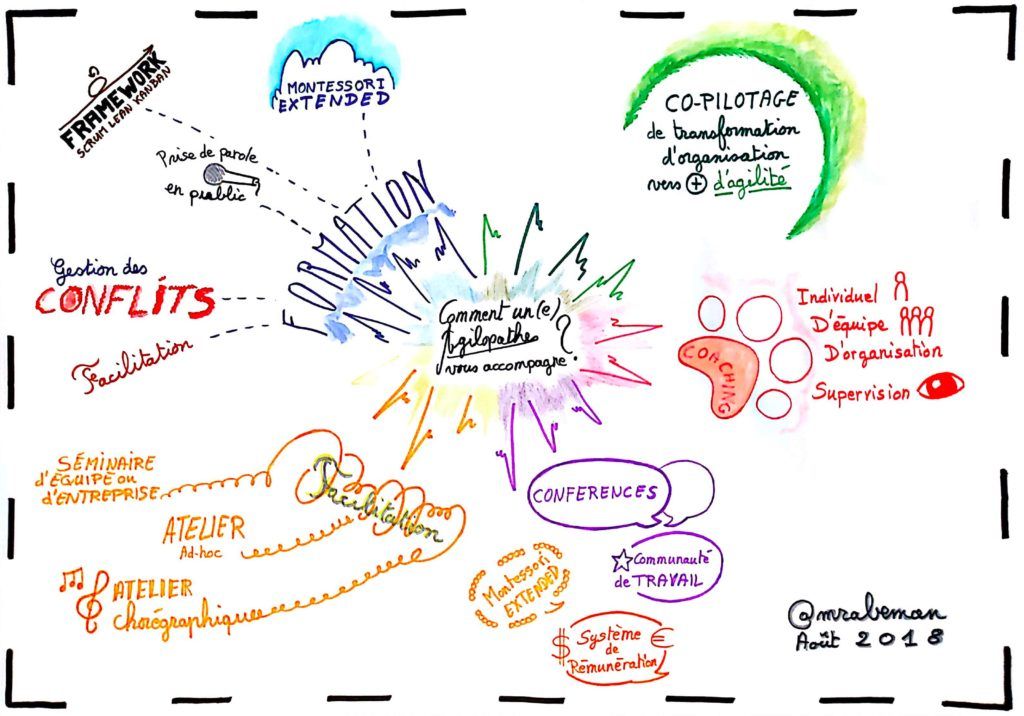 Comment un(e)
Agilopathe
vous accompagne ?
FORMATION
FRAMEWORK
SCRUM LEAN KANBAN
MONTESSORI
EXTENDED
Prise de parole
en public
Gestion des
CONFLITS
Facilitation
CO-PILOTAGE
de transformation
d'organisation
vers + d'agilité
COACHING
Individuel
D'équipe
D'organisation
Supervision
CONFERENCES
Communauté
de TRAVAIL
Montessori
EXTENDED
$ Système €
de
Rémunération
Facilitation
SÉMINAIRE
d'ÉQUIPE ou
d'ENTREPRISE
ATELIER
Ad-hoc
ATELIER
chorégraphique
@mrabeman
Août 2018